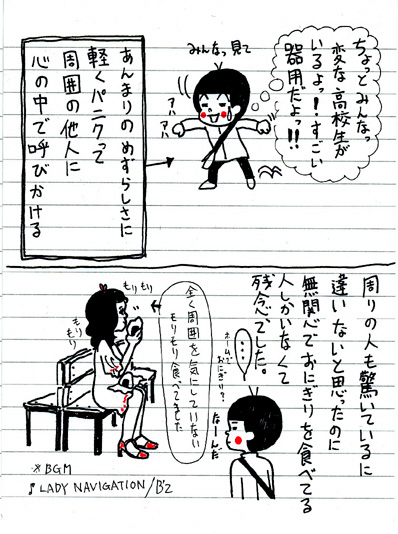 ちょっとみんなっ
変な高校生が
いるよっ!すごい
器用だよっ!!
みんなっ見て
アハ
アハ
あんまりのめずらしさに
軽くパニクって
周囲の他人に
心の中で呼びかける
周りの人も驚いているに
違いないと思ったのに
無関心でおにぎりを食べてる
人しかいなくて
残念でした。
・・・・
ホームで
おにぎり?
なーんだ
全く周囲を気にしていない
もりもり食べてました
もりもり
もりもり
※BGM
♪LADY NAVIGATION/B'z